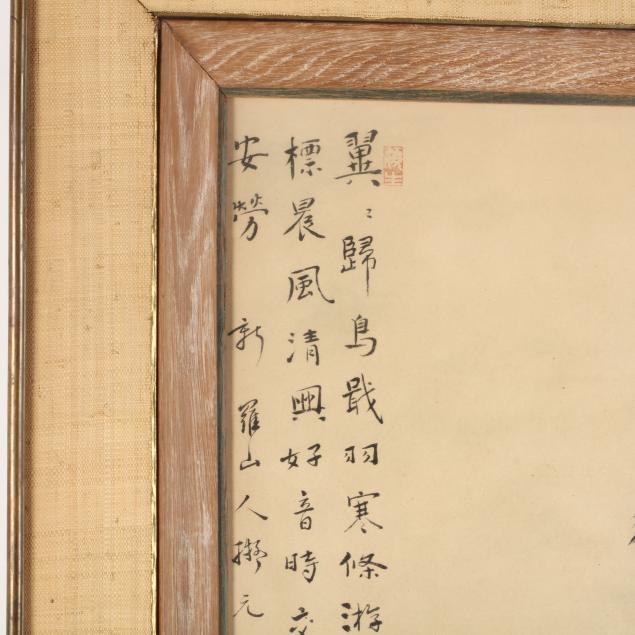 翼〻歸鳥戢羽寒條游
標晨風清興好音時交
安勞 新羅山人擬元